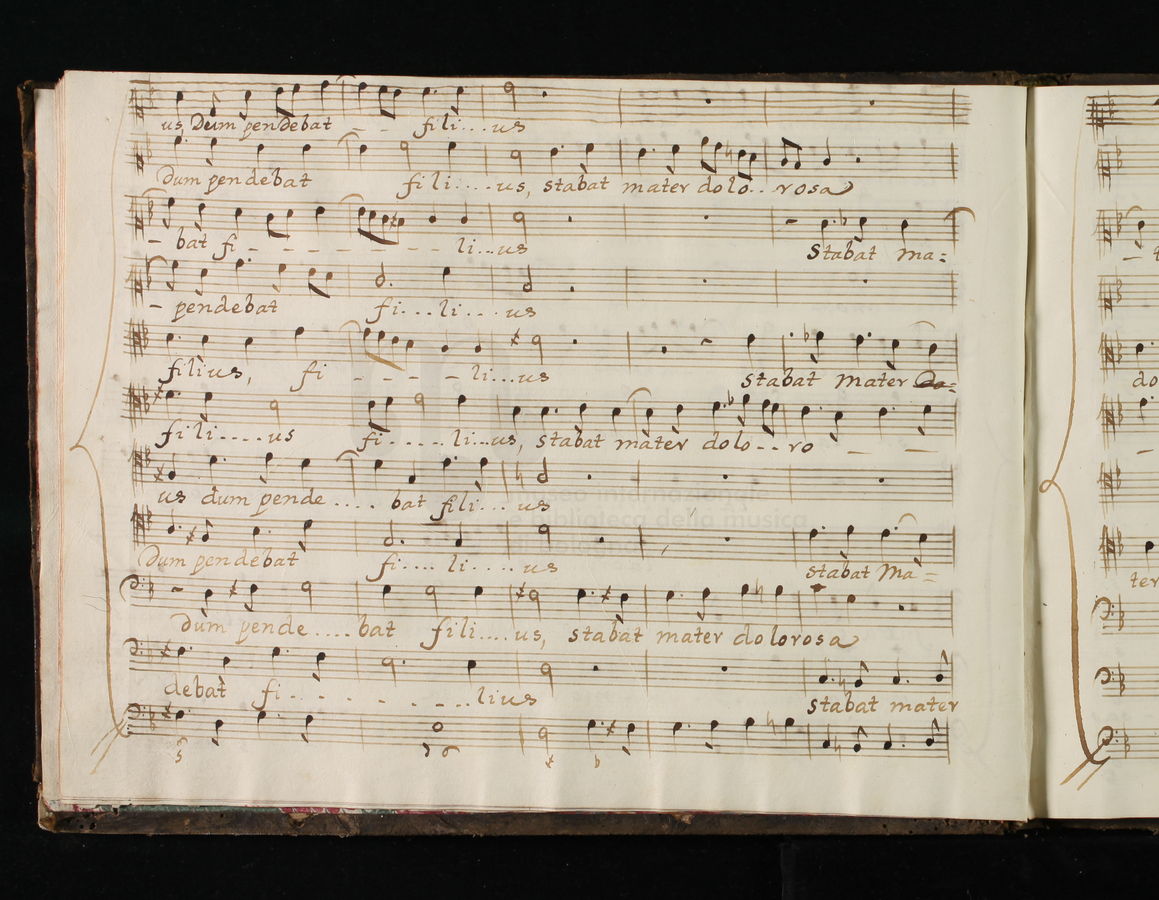 us Dum pendebat - - fili...us
Dum pendebat fili....us, stabat mater dolo..rosa
- bat fi - - - - - - - li...us Stabat ma=
- pendebat fi...li....us
filius, fi - - - - li...us Stabat Mater
fili....us fi.....li...us, stabat mater dolo--ro - -
us dum pende.... bat fili...us
Dum pendebat fi....li....us stabat Ma=
dum pende....bat fili....us, stabat mater dolorosa
debat fi.......lius stabat mater
do
ter
museo internazionale
e biblioteca della musica
di bologna